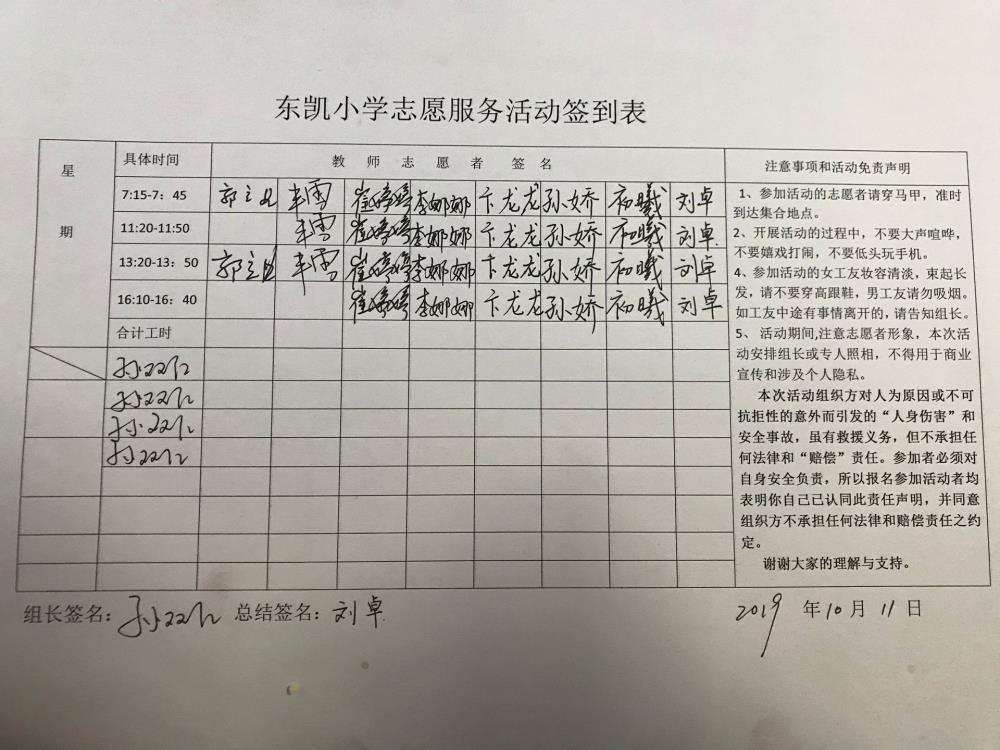 东凯小学志愿服务活动签到表
星期
具体时间 教师志愿者签名 注意事项和活动免责声明
7:15-7：45 郭立 丰雪 崔婷婷 李娜娜 卞龙龙 孙娇 初曦 刘卓
11:20-11:50 丰雪 崔婷婷 李娜娜 卞龙龙 孙娇 初曦 刘卓
13:20-13：50 郭立 丰雪 崔婷婷 李娜娜 卞龙龙 孙娇 初曦 刘卓
16:10-16：40 崔婷婷 李娜娜 卞龙龙 孙娇 初曦 刘卓
合计工时
孙双
孙双
孙双
孙双
1、参加活动的志愿者请穿马甲，准时
到达集合地点。
2、开展活动的过程中，不要大声喧哗，
不要嬉戏打闹，不要低头玩手机。
4、参加活动的女工友妆容清淡，束起长
发，请不要穿高跟鞋，男工友请勿吸烟。
如工友中途有事情离开的，请告知组长。
5、 活动期间,注意志愿者形象，本次活
动安排组长或专人照相，不得用于商业
宣传和涉及个人隐私。
本次活动组织方对人为原因或不可
抗拒性的意外而引发的“人身伤害”和
安全事故，虽有救援义务，但不承担任
何法律和“赔偿”责任。参加者必须对
自身安全负责，所以报名参加活动者均
表明你自己已认同此责任声明，并同意
组织方不承担任何法律和赔偿责任之约
定。
谢谢大家的理解与支持。
组长签名：孙双 总结签名：刘卓 2019 年10月 11 日